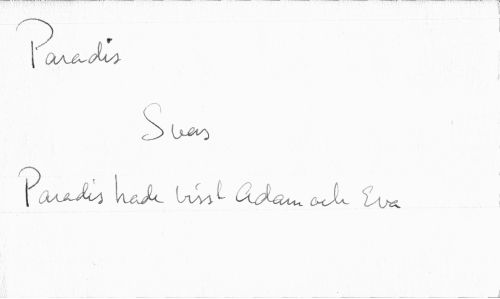 Paradis
Svar
Paradis hade visst Adam och Eva